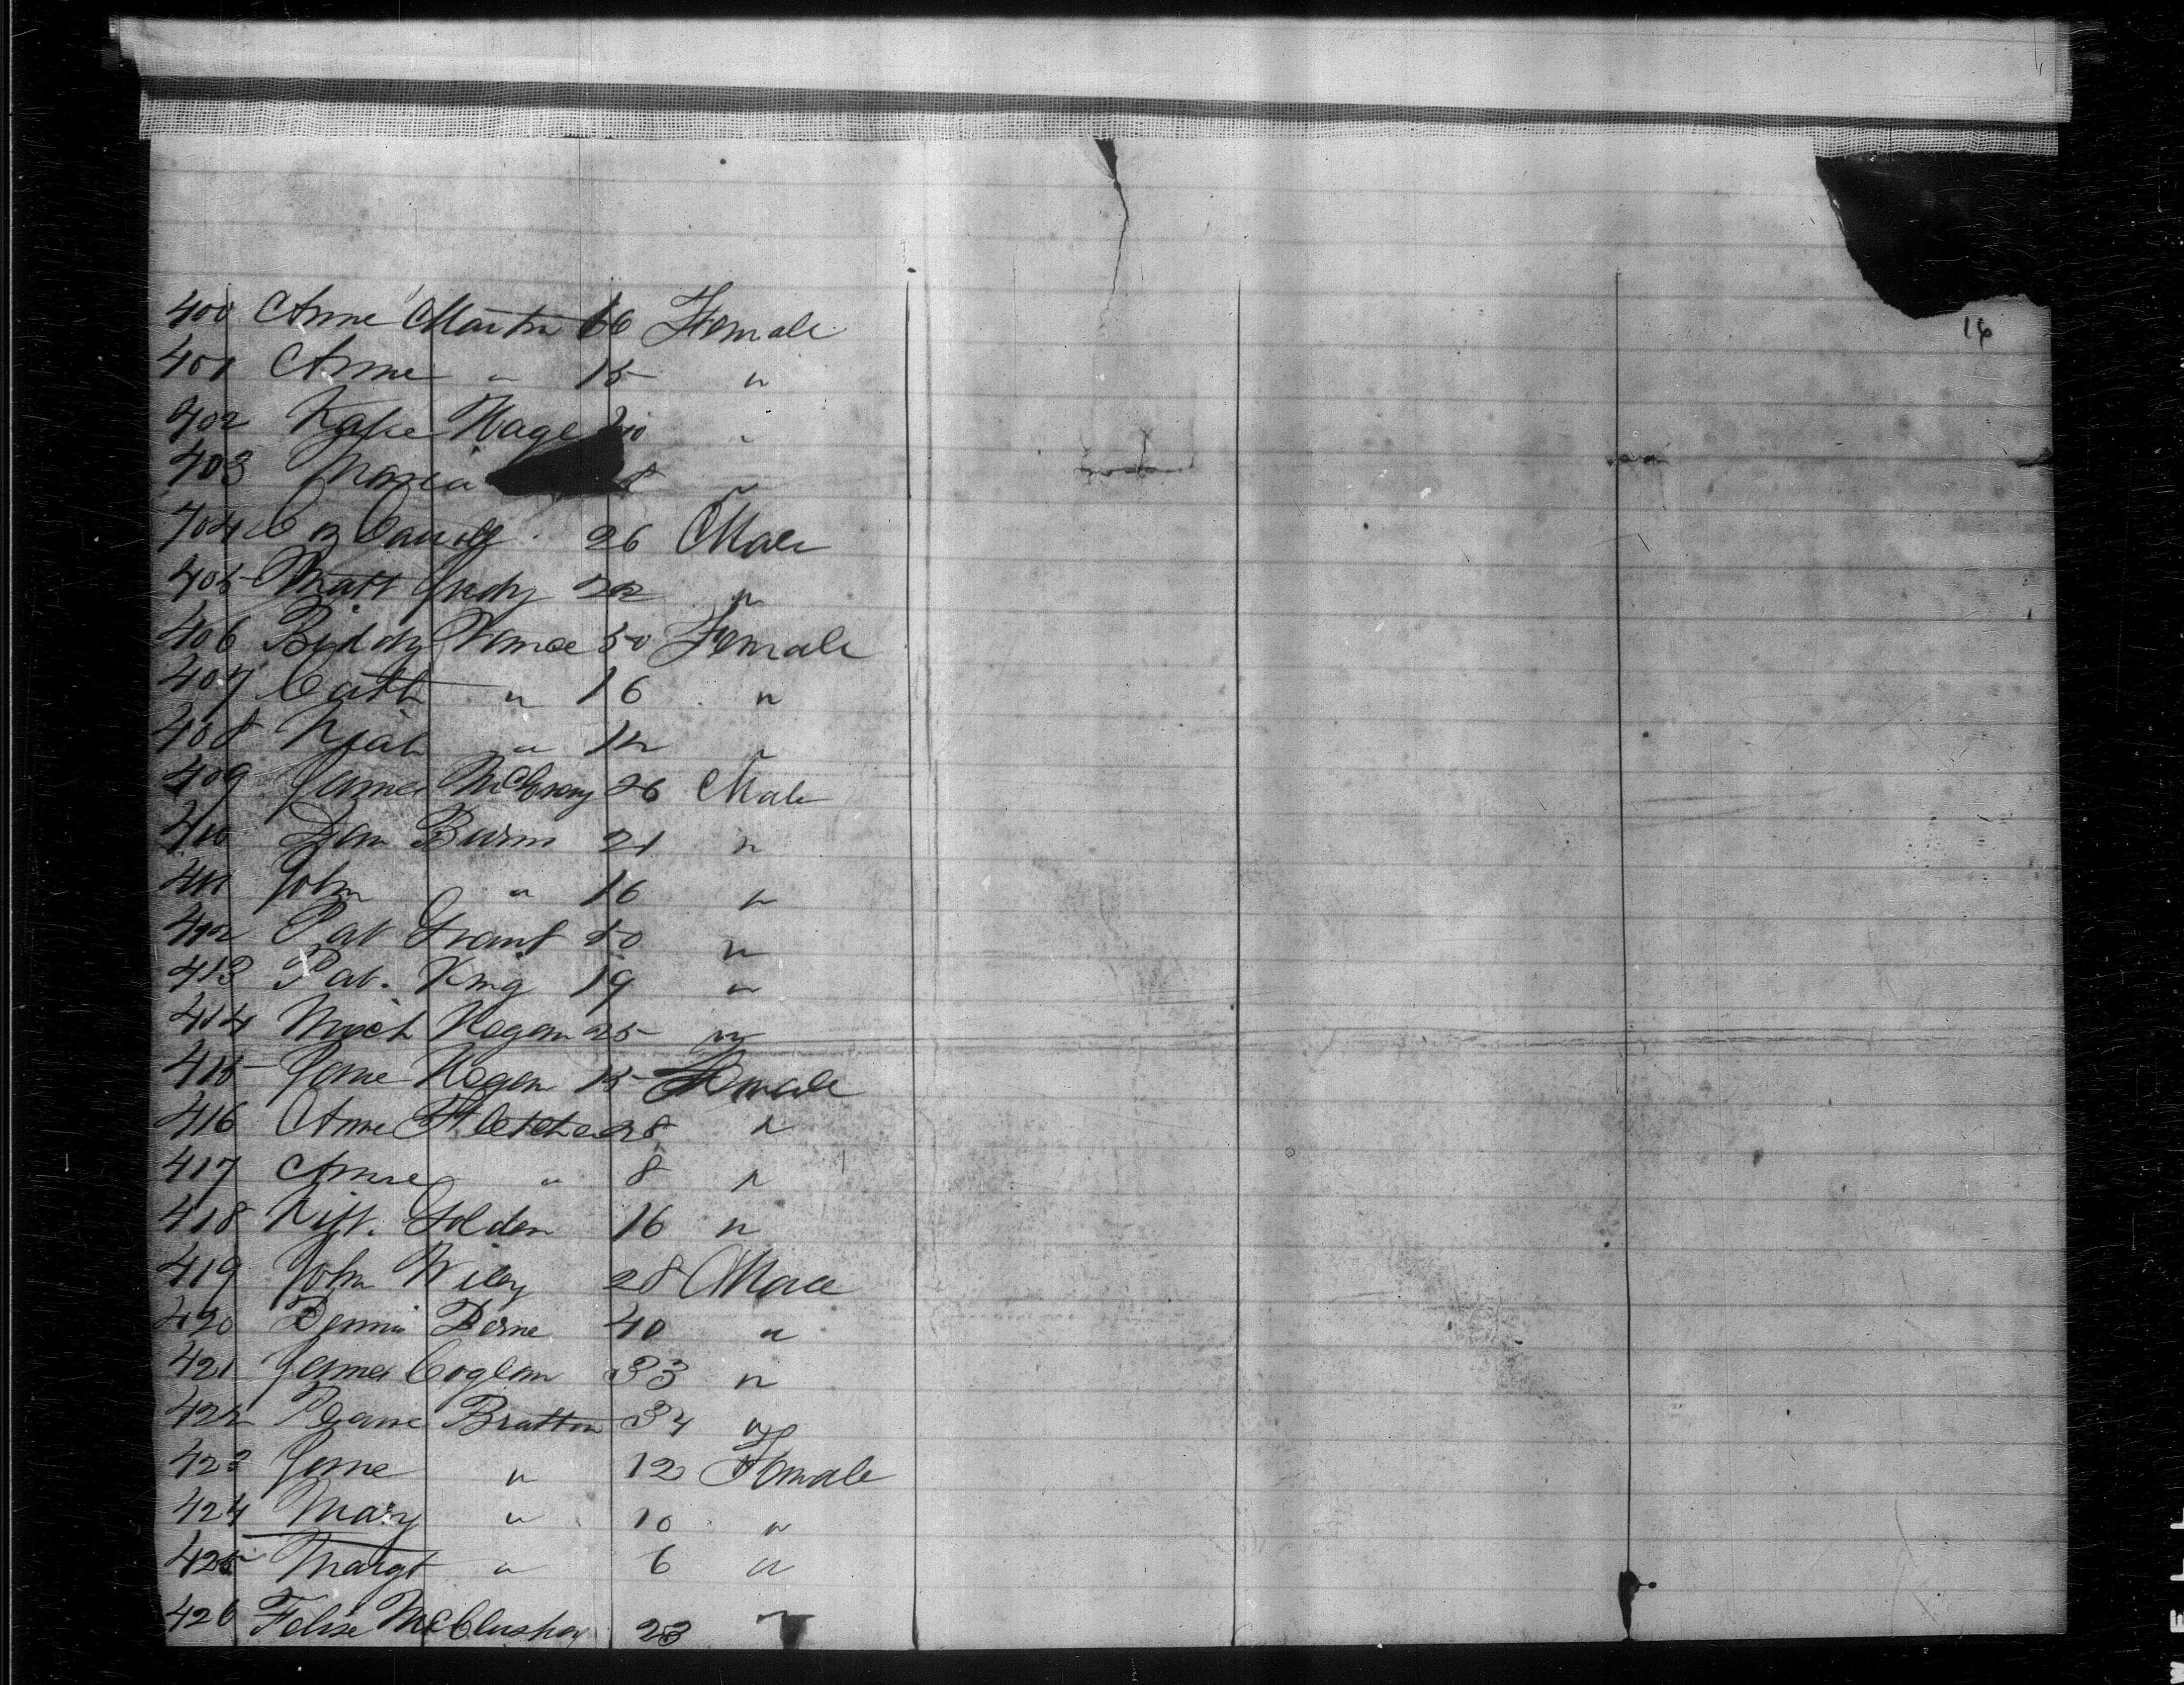 16
400 Anne Martin 66 Female
401 Anne " 15 "
402 Kate Hage 20 "
403 Maria 8 "
404 26 Male
405 Matt Judy 22 "
406 Biddy Vance 50 Female
407 Cath " 16 "
408 " 12 "
409 James 26 Male
410 Dan Burns 21 "
411 John " 16 "
412 Pat Grant 50 "
413 Pat. King 19 "
414 Mich Hegan 25 "
415 Jane Hegan 15 Female
416 Anne Fletcher 28 "
417 Anne " 8 "
418 Kitt. Golden 16 "
419 John Wiley 28 Male
420 Dennis 40 "
421 James Coglan 33 "
422 Bratton 34 "
423 Jane " 12 Female
424 Mary " 10 "
425 Margt " 6 "
426 Felise McCluskey 23 "